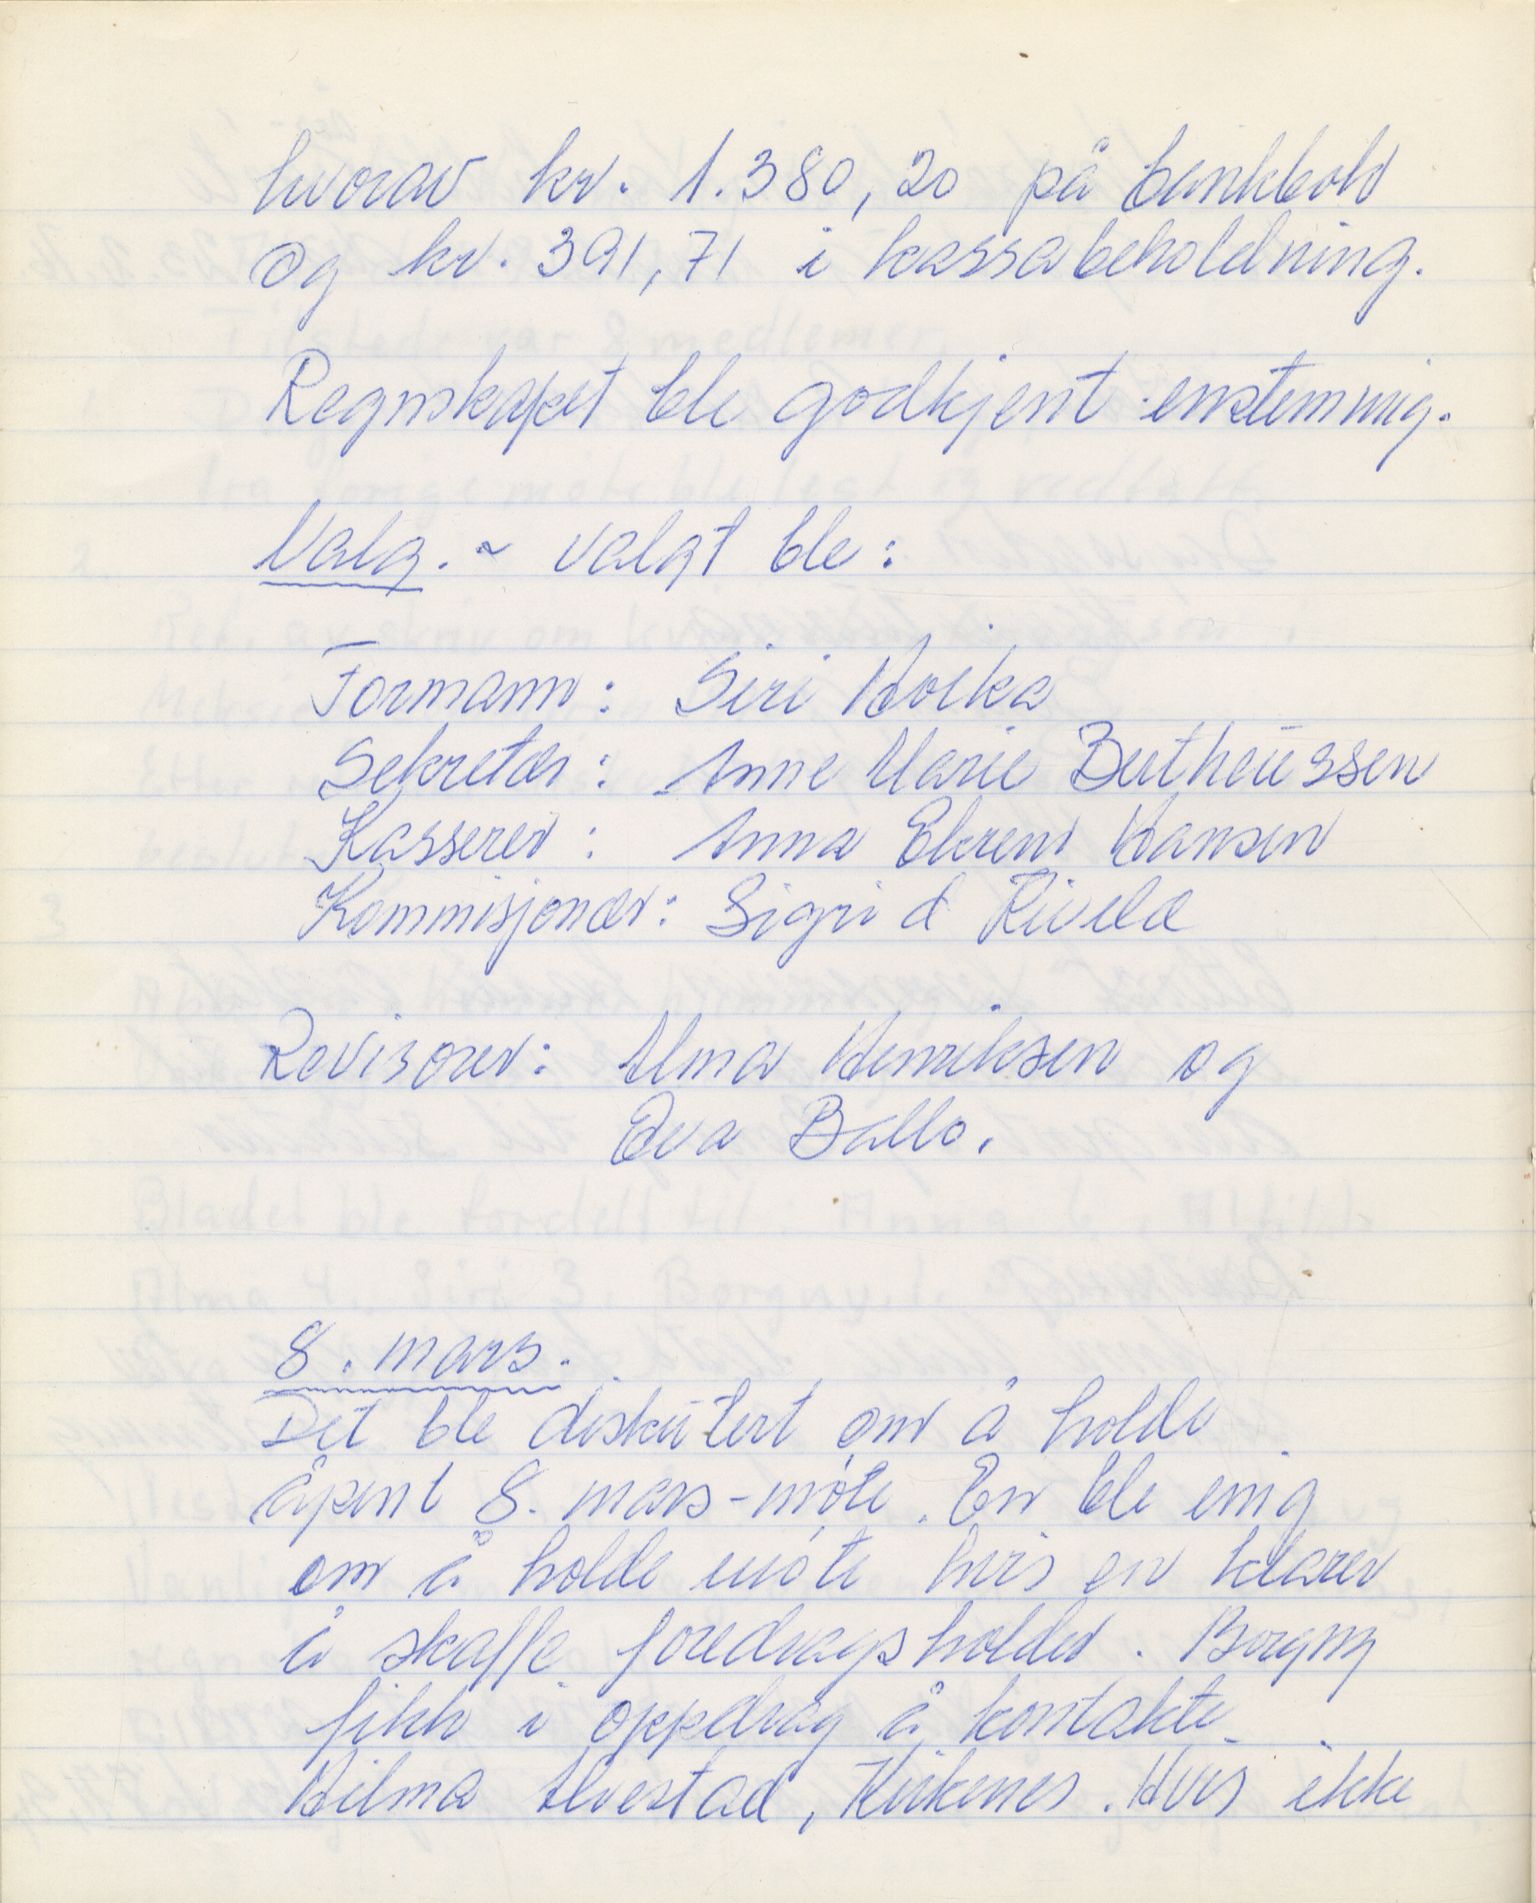 hvorav kr. 1.380,20 på bankbok
og kr. 391,71 i kassabeholdning.
Regnskapet ble godkjent enstemmig.
Valg. - valgt ble:
Formann: Siri Hoika
Sekretær: Anne Marie Bertheussen
Kasserer: Anna Ekrem Hansen
Kommisjonær: Sigrid Rivelæ
Revisorer: Alma Henriksen og
Eva Ballo.
8. mars.
Det ble diskutert om å holde
åpent 8. mars-møte. En ble enig
om å holde møte hvis en klarer
å skaffe foredragsholder. Borgny
fikk i oppdrag å kontakte
Hilma Alvestad, Kirkenes. Hvis ikke